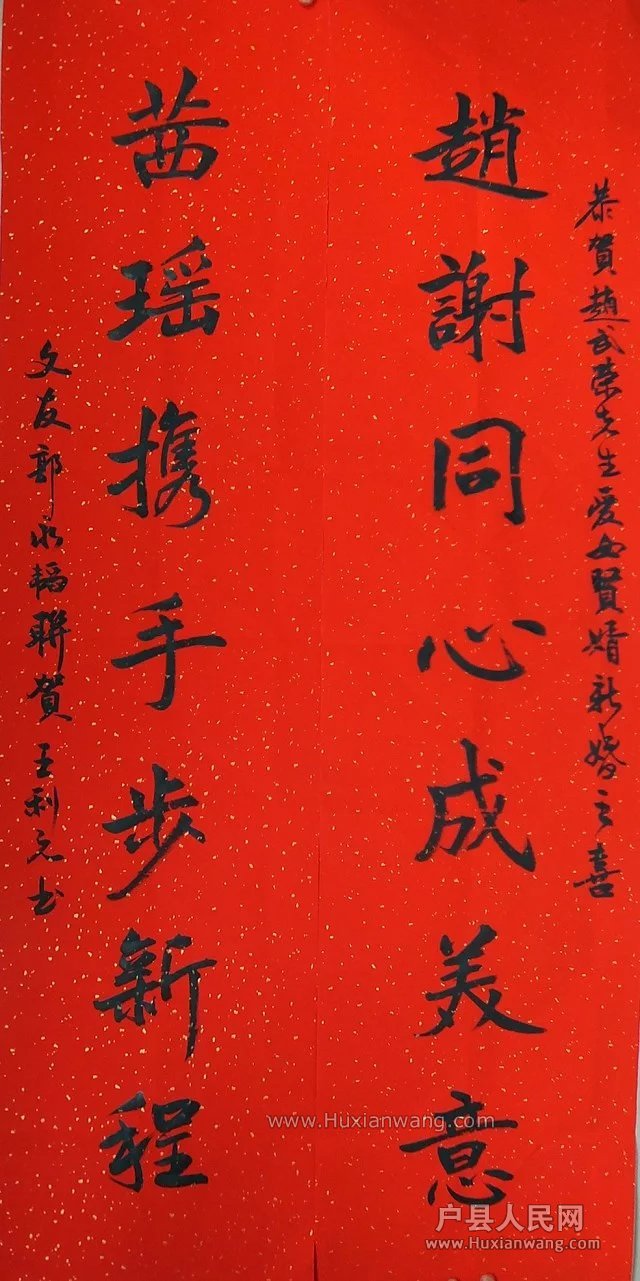 恭賀趙武荣先生愛女賢婿新婚之喜
趙謝同心成美意
茜瑶携手步新程
文友郭永韬联賀 王利元书
www.Huxianwang.com
户县人民网
www.Huxianwang.com